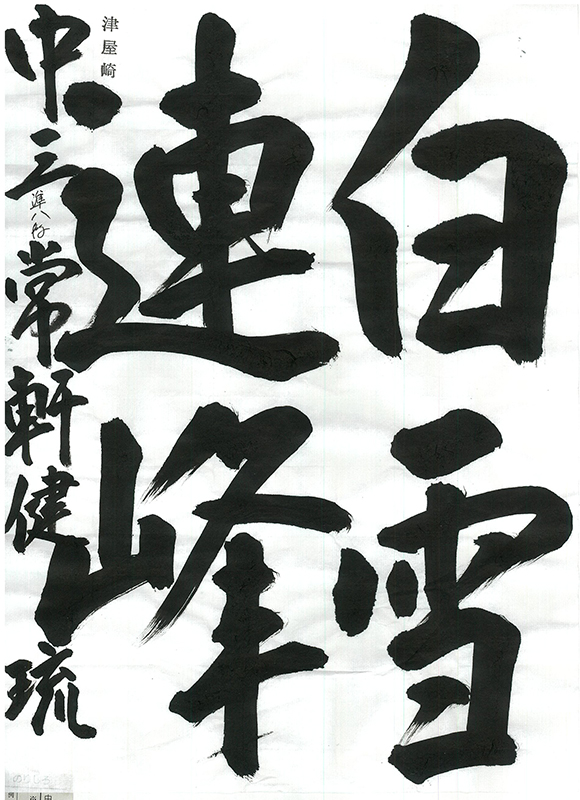 白雪
連峰
津屋崎
中三 準八段 常軒健琉